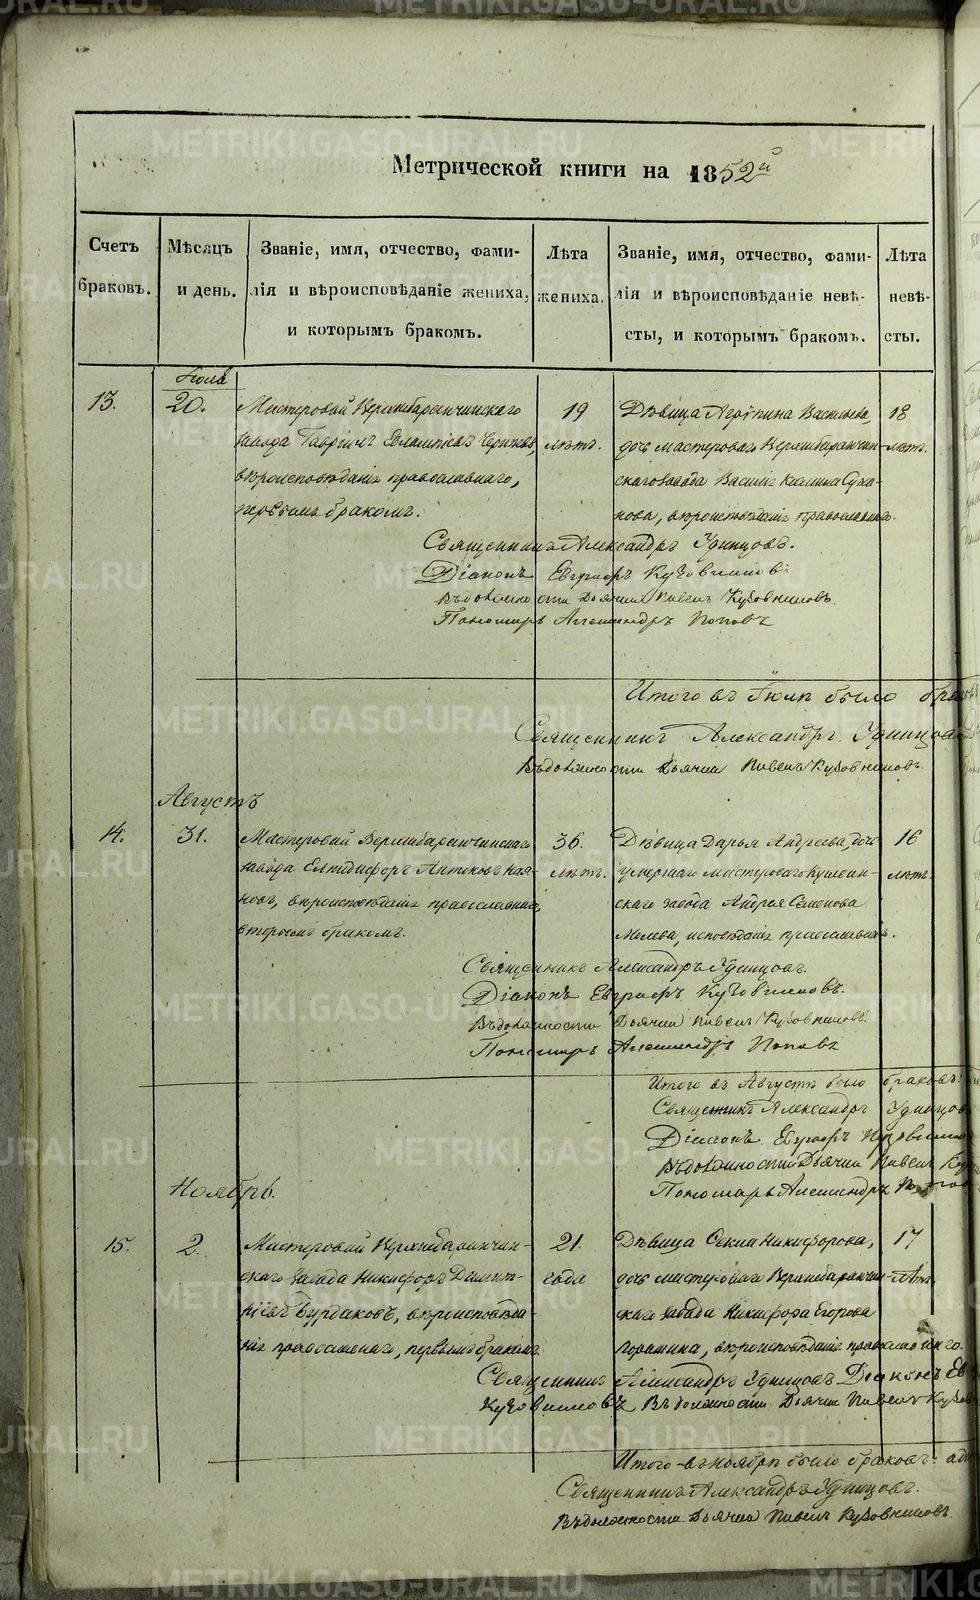 Метрической книги на 1852й
Счетъ браковъ.
Мѣсяцъ и день.
Званіе, имя, отчество, фами-
лія и вѣроисповѣданіе жениха,
и которымъ бракомъ.
Лѣта жениха.
Званіе, имя, отчество, фами-
лія и вѣроисповѣданіе невѣ-
сты, и которымъ бракомъ.
Лѣта невѣ-
сты.
Іюль
13.
20.
Мастеровой Верхнебаранчинскаго
завода Гавріилъ
вѣроисповѣданія православнаго,
первымъ бракомъ.
19
лѣтъ.
Дѣвица Агрипина Васильева,
дочь мастероваго Верхнебаранчин-
скаго завода Василія Космина Суха-
нова, вѣроисповѣданія православнаго.
18
лѣтъ.
Священникъ Александръ Удинцовъ.
Діаконъ Евграфъ Кузовниковъ
Въ должности Дьячка Павелъ Кузовниковъ.
Пономарь Александръ Поповъ
Итого въ Іюлѣ было бра
Священникъ Александръ Удинцов
Въ должности Дьячка Павелъ Кузовниковъ.
Августъ
14.
31.
Мастеровой Верхнебаранчинскаго
завода Елпидифоръ Антоновъ
вѣроисповѣданія православнаго,
вторымъ бракомъ.
36.
лѣтъ.
Дѣвица Дарья Андреева, дочь
умершаго мастероваго Кушвин-
скаго завода Андрея Семенова
исповѣданія православнаго.
16
лѣтъ.
Священникъ Александръ Удинцовъ.
Діаконъ Евграфъ Кузовниковъ.
Въ должности Дьячка Павелъ Кузовниковъ.
Пономарь Александръ Поповъ
Итого въ Августѣ было браковъ:
Священникъ Александръ Удинцов
Діаконъ Евграфъ Кузовнико
Въ должности Дьячка Павелъ Куз
Пономарь Александръ Попов
Ноябрь.
15.
2.
Мастеровой Верхнебаранчин-
скаго завода Никифоръ Димит-
ріевъ Бурдаковъ, вѣроисповѣда-
нія православнаго, первымъ бракомъ.
21.
года
Дѣвица Никифорова,
дочь мастероваго Верхнебаранчин-
скаго завода Никифора Егорова
вѣроисповѣданія православнаго.
17
лѣтъ
Священникъ Александръ Удинцовъ Діаконъ Ев
Кузовниковъ Въ должности Дьячка Павелъ Кузов
Итого въ ноябрѣ было браковъ: оди
Священникъ Александръ Удинцовъ.
Въ должности Дьячка Павелъ Кузовниковъ.
METRIKI.GASO-URAL.RU